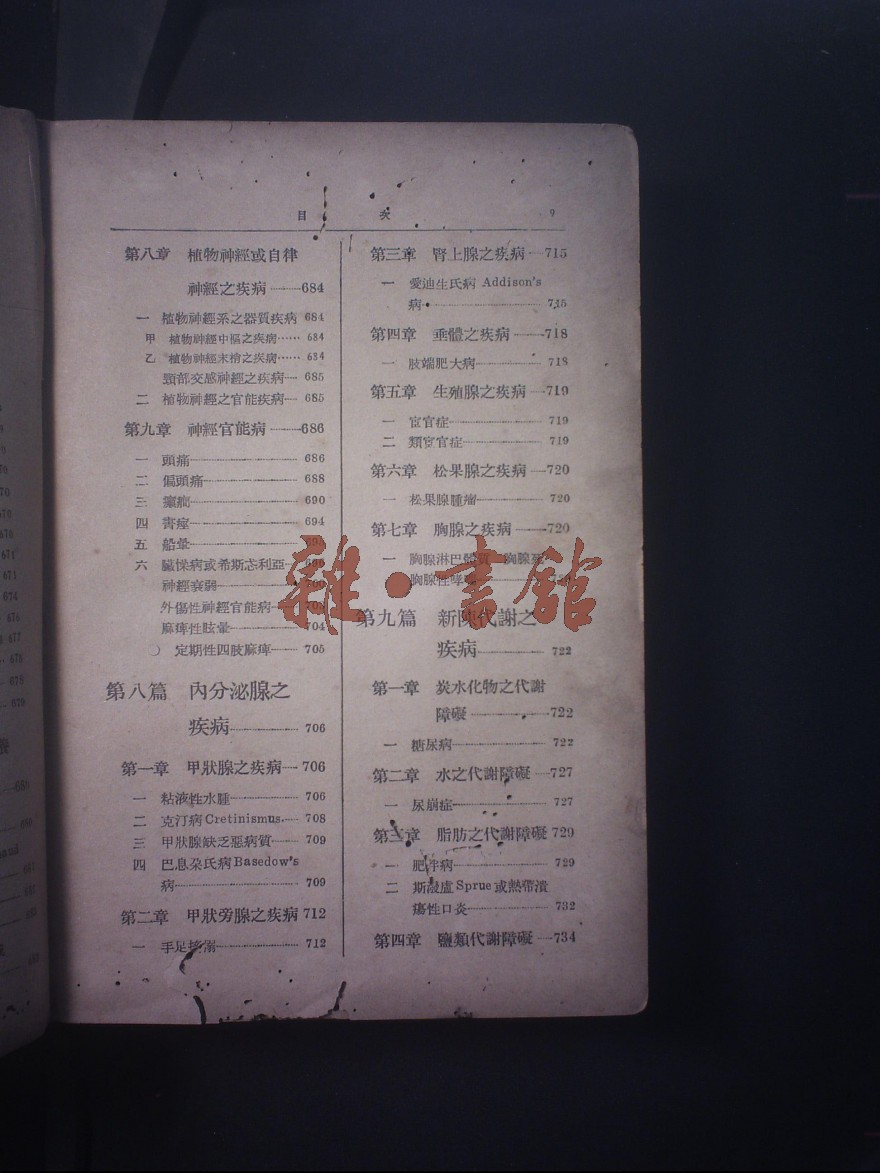 目 次 9
第八章 植物神經或自律
神經之疾病 684
一 植物神經系之器質疾病 684
甲 植物神經中樞之疾病 684
乙 植物神經末梢之疾病 684
頸部交感神經之疾病 685
二 植物神經之官能疾病 685
第九章 神經官能病 686
一 頭痛 686
二 偏頭痛 688
三 癲癇 690
四 書痙 694
五 船暈
六 臟懆病或希斯忒利亞
神經衰弱
外傷性神經官能病
麻痺性眩暈 704
定期性四肢麻痺 705
第八篇 內分泌腺之
疾病 706
第一章 甲狀腺之疾病 706
一 粘液性水腫 706
二 克汀病Cretinismus 708
三 甲狀腺缺乏惡病質 709
四 巴息朶氏病Basedow's
病 709
第二章 甲狀旁腺之疾病 712
一 手足搐溺 712
第三章 腎上腺之疾病 715
一 愛迪生氏病 Addison's
病 715
第四章 垂體之疾病 718
一 肢端肥大病 718
第五章 生殖腺之疾病 719
一 宦官症 719
二 類宦官症 719
第六章 松果腺之疾病 720
一 松果腺腫瘤 720
第七章 胸腺之疾病 720
一 胸腺淋巴體質 胸腺死
胸腺性哮喘
雜·書館
第九篇 新陳代謝之
疾病 722
第一章 炭水化物之代謝
障礙 722
一 糖尿病 722
第二章 水之代謝障礙 727
一 尿崩症 727
第三章 脂肪之代謝障礙 729
一 肥胖病 729
二 斯潑盧Sprue或熱帶潰
瘍性口炎 732
第四章 鹽類代謝障礙 734